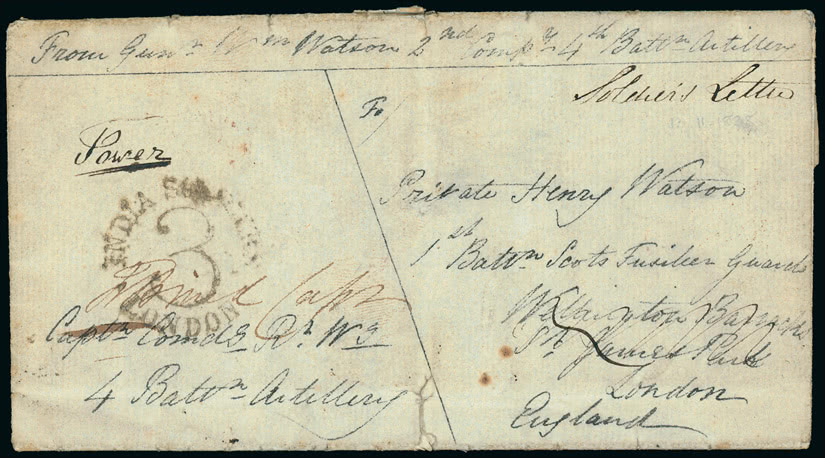 From Gunr Wm Watson 2nd Compy 4th Battn Artillery
Soldier's Letter
To
Tower
Private Henry Watson
1st Battn Scots Fusileer Guards
Wellington Barracks
St James Park
London
England
INDIA SOLDIERS
3
LONDON
Captn Comdg Rt Wg
4 Battn Artillery